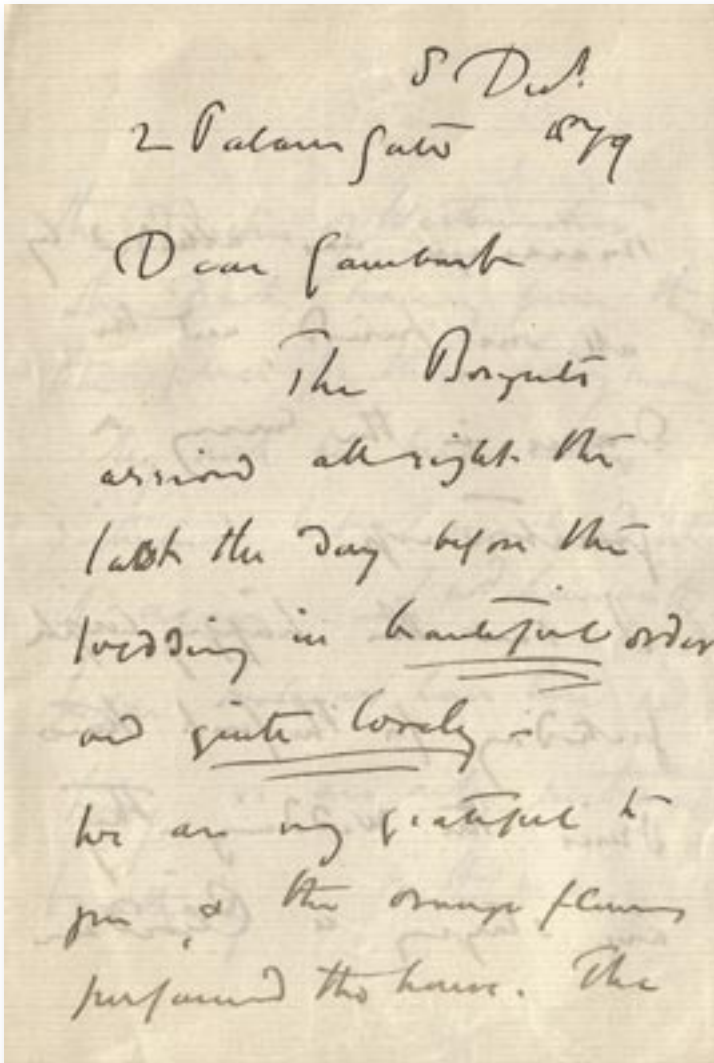 8 Dec!
2 Palace Gate 1879
Dear Gambart
The Boquets
arrived all right the
last the day before the
wedding in beautiful order
and quite lovely –
We are very grateful to
you, & the orange flowers
perfumed the house. The